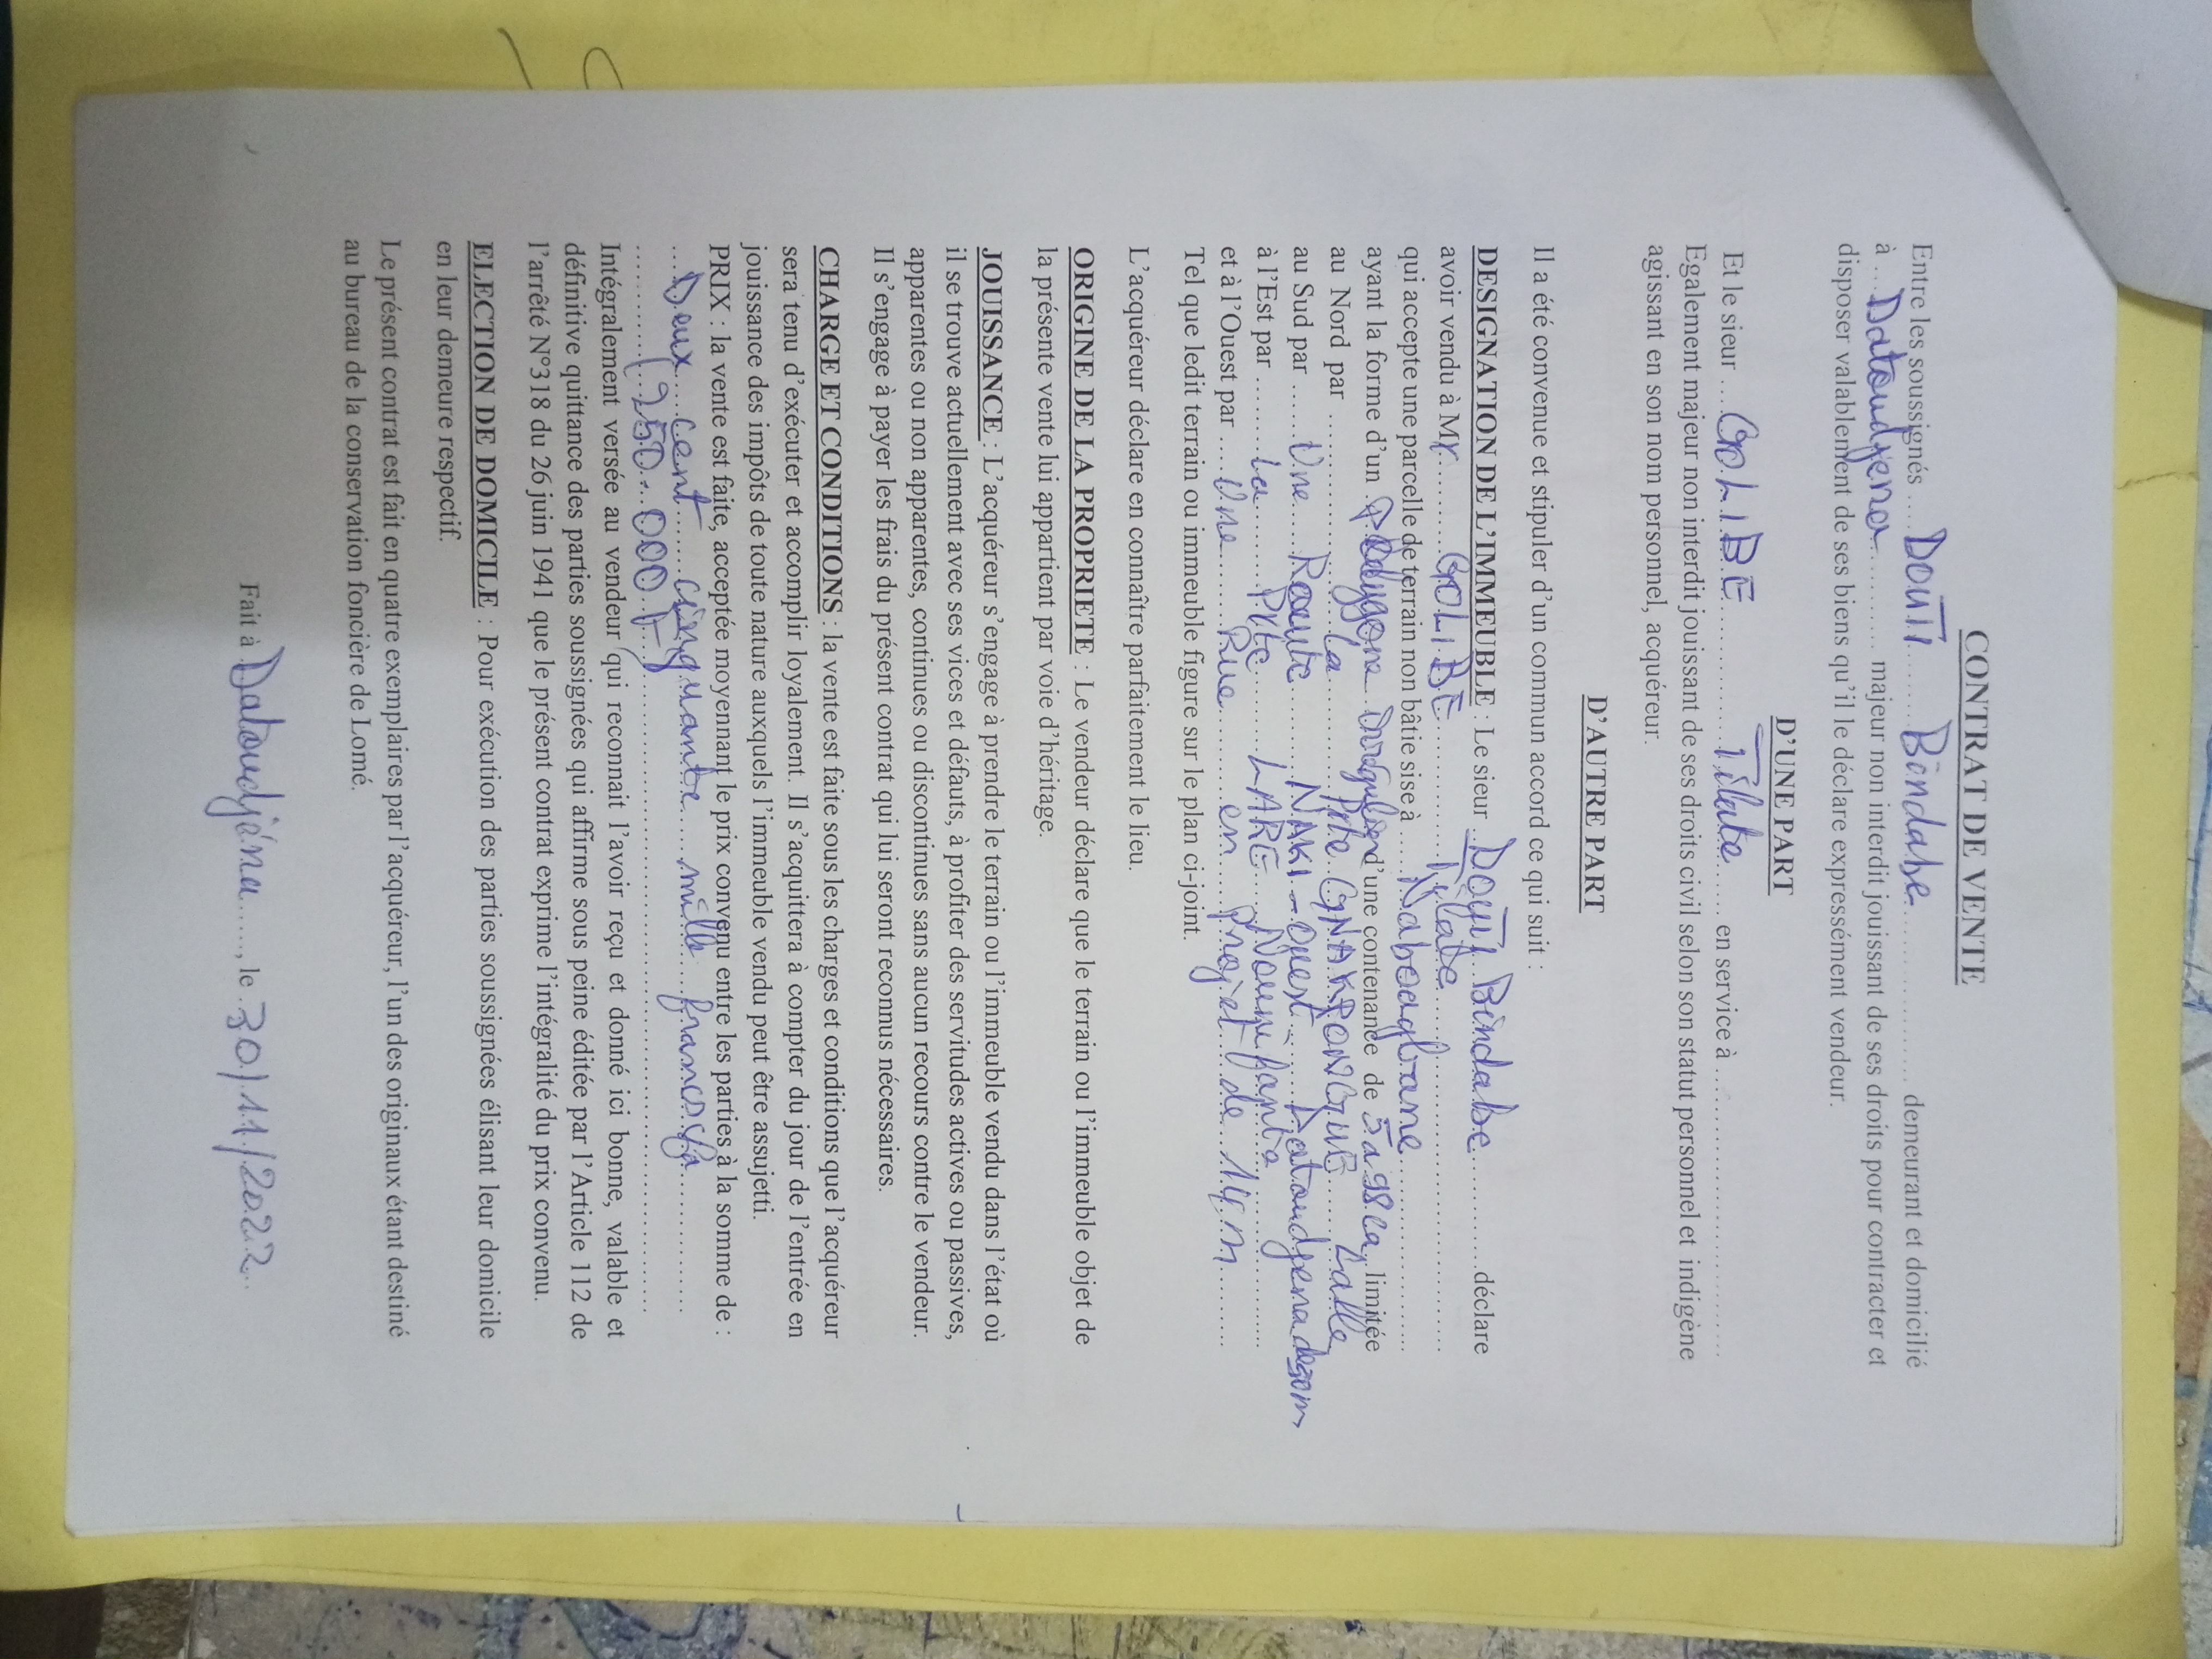 CONTRAT DE VENTE
Entre les soussignés .... DOUTI ........ Bindabe .................... demeurant et domicilié
à ... Datoudjena ............ majeur non interdit jouissant de ses droits pour contracter et
disposer valablement de ses biens qu'il le déclare expressément vendeur.
D'UNE PART
Et le sieur .... GOLIBE ................ Tilate ..... en service à ................................
Egalement majeur non interdit jouissant de ses droits civil selon son statut personnel et indigène
agissant en son nom personnel, acquéreur.
D'AUTRE PART
Il a été convenue et stipuler d'un commun accord ce qui suit :
DESIGNATION DE L'IMMEUBLE : Le sieur .. DOUTI .. Bindabe ............ déclare
avoir vendu à Mr ......... GOLIBE ............... Tilate ..............................
qui accepte une parcelle de terrain non bâtie sise à .... Naboagbane ....................
ayant la forme d'un .. Polygone .. Irrégulier d'une contenance de 5a98ca, limitée
au Nord par ..................... La ......... Pte .. GNAKPONGUE ...... Lalle
au Sud par ...... Une .... Route .......... NAKI-Ouest ..... Datoudjenadeom
à l'Est par ......... La ....... Pte ...... LARE ... Nounfanba ............
et à l'Ouest par .... Une ........ Rue ......... en ..... Projet de 14m .........
Tel que ledit terrain ou immeuble figure sur le plan ci-joint.
L'acquéreur déclare en connaître parfaitement le lieu.
ORIGINE DE LA PROPRIETE : Le vendeur déclare que le terrain ou l'immeuble objet de
la présente vente lui appartient par voie d'héritage.
JOUISSANCE : L'acquéreur s'engage à prendre le terrain ou l'immeuble vendu dans l'état où
il se trouve actuellement avec ses vices et défauts, à profiter des servitudes actives ou passives,
apparentes ou non apparentes, continues ou discontinues sans aucun recours contre le vendeur.
Il s'engage à payer les frais du présent contrat qui lui seront reconnus nécessaires.
CHARGE ET CONDITIONS : la vente est faite sous les charges et conditions que l'acquéreur
sera tenu d'exécuter et accomplir loyalement. Il s'acquittera à compter du jour de l'entrée en
jouissance des impôts de toute nature auxquels l'immeuble vendu peut être assujetti.
PRIX : la vente est faite, acceptée moyennant le prix convenu entre les parties à la somme de :
... Deux .... cent ...... cinquante ..... mille ..... francs cfa ...............
........... (250.000 F) ............................................................
Intégralement versée au vendeur (qui reconnait l'avoir reçu et donné ici bonne, valable et
définitive quittance des parties soussignées qui affirme sous peine éditée par l'Article 112 de
l'arrêté N°318 du 26 juin 1941 que le présent contrat exprime l'intégralité du prix convenu.
ELECTION DE DOMICILE : Pour exécution des parties soussignées élisant leur domicile
en leur demeure respectif.
Le présent contrat est fait en quatre exemplaires par l'acquéreur, l'un des originaux étant destiné
au bureau de la conservation foncière de Lomé.
Fait à Datoudjéna ......, le .30/11/2022...